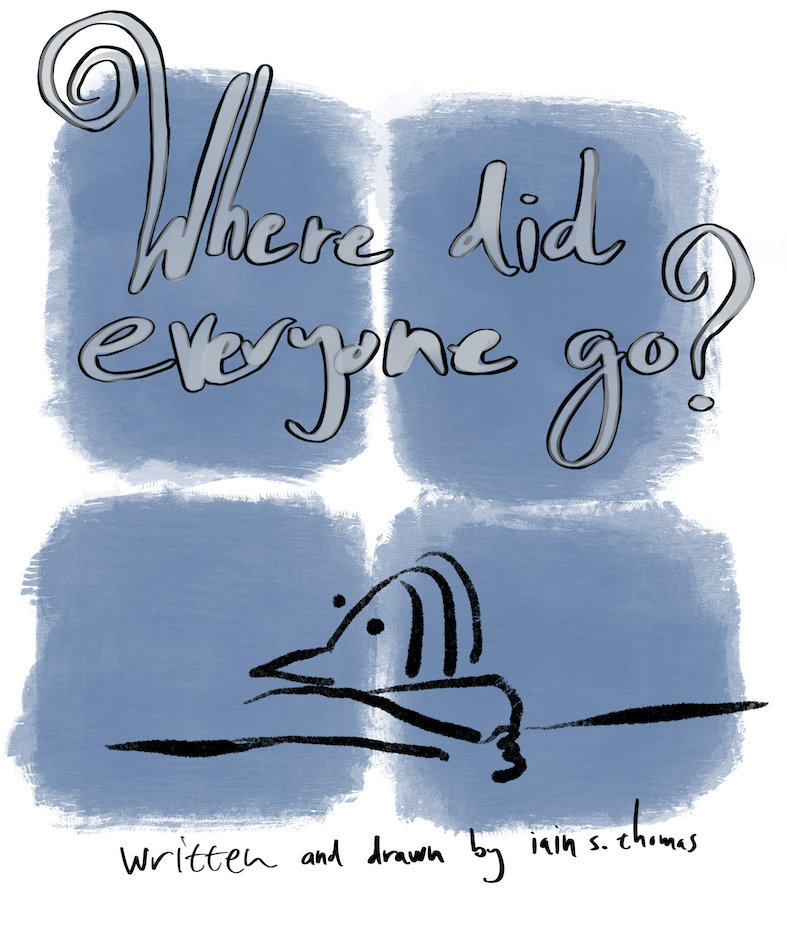 Where did
everyone go?
written and drawn by iain s. thomas